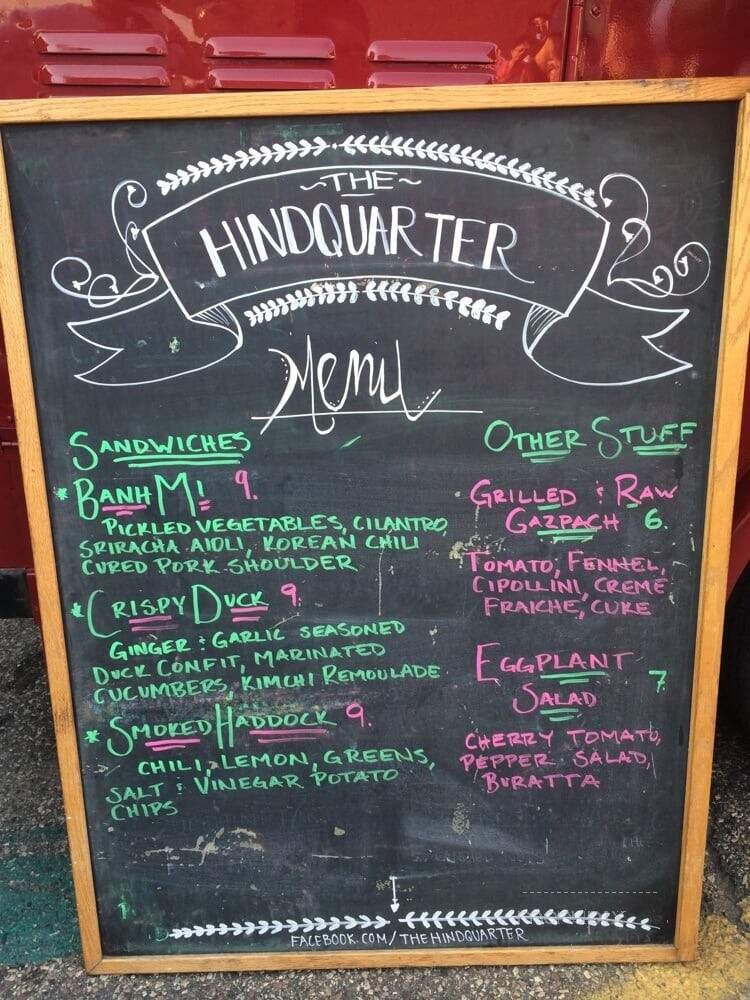 ~THE~
HINDQUARTER
Menu
SANDWICHES
* BANH MI 9.
PICKLED VEGETABLES, CILANTRO,
SRIRACHA AIOLI, KOREAN CHILI
CURED PORK SHOULDER
* CRISPY DUCK 9.
GINGER & GARLIC SEASONED
DUCK CONFIT, MARINATED
CUCUMBERS, KIMCHI REMOULADE
* SMOKED HADDOCK 9.
CHILI, LEMON, GREENS,
SALT & VINEGAR POTATO
CHIPS
OTHER STUFF
GRILLED & RAW
GAZPACH 6.
TOMATO, FENNEL,
CIPOLLINI, CREME
FRAICHE, CUKE
EGGPLANT
SALAD 7.
CHERRY TOMATO,
PEPPER SALAD,
BURATTA
FACEBOOK.COM/THEHINDQUARTER